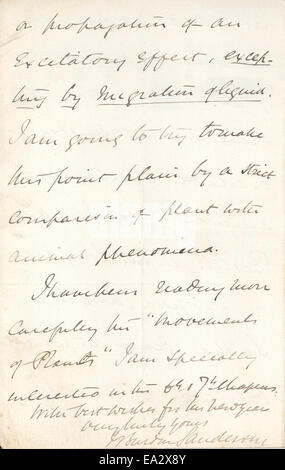 or propagation of an
Excitatory Effect, excep-
ting by Migration of liquid.
I am going to try to make
this point plain by a strict
comparison of plant with
animal phenomena.
I have been reading more
carefully his "Movements
of Plants" I am specially
interested in the 6th & 7th chapters.
With best wishes for the new year
very truly yours
J Burdon Sanderson
alamy
EA2X8Y